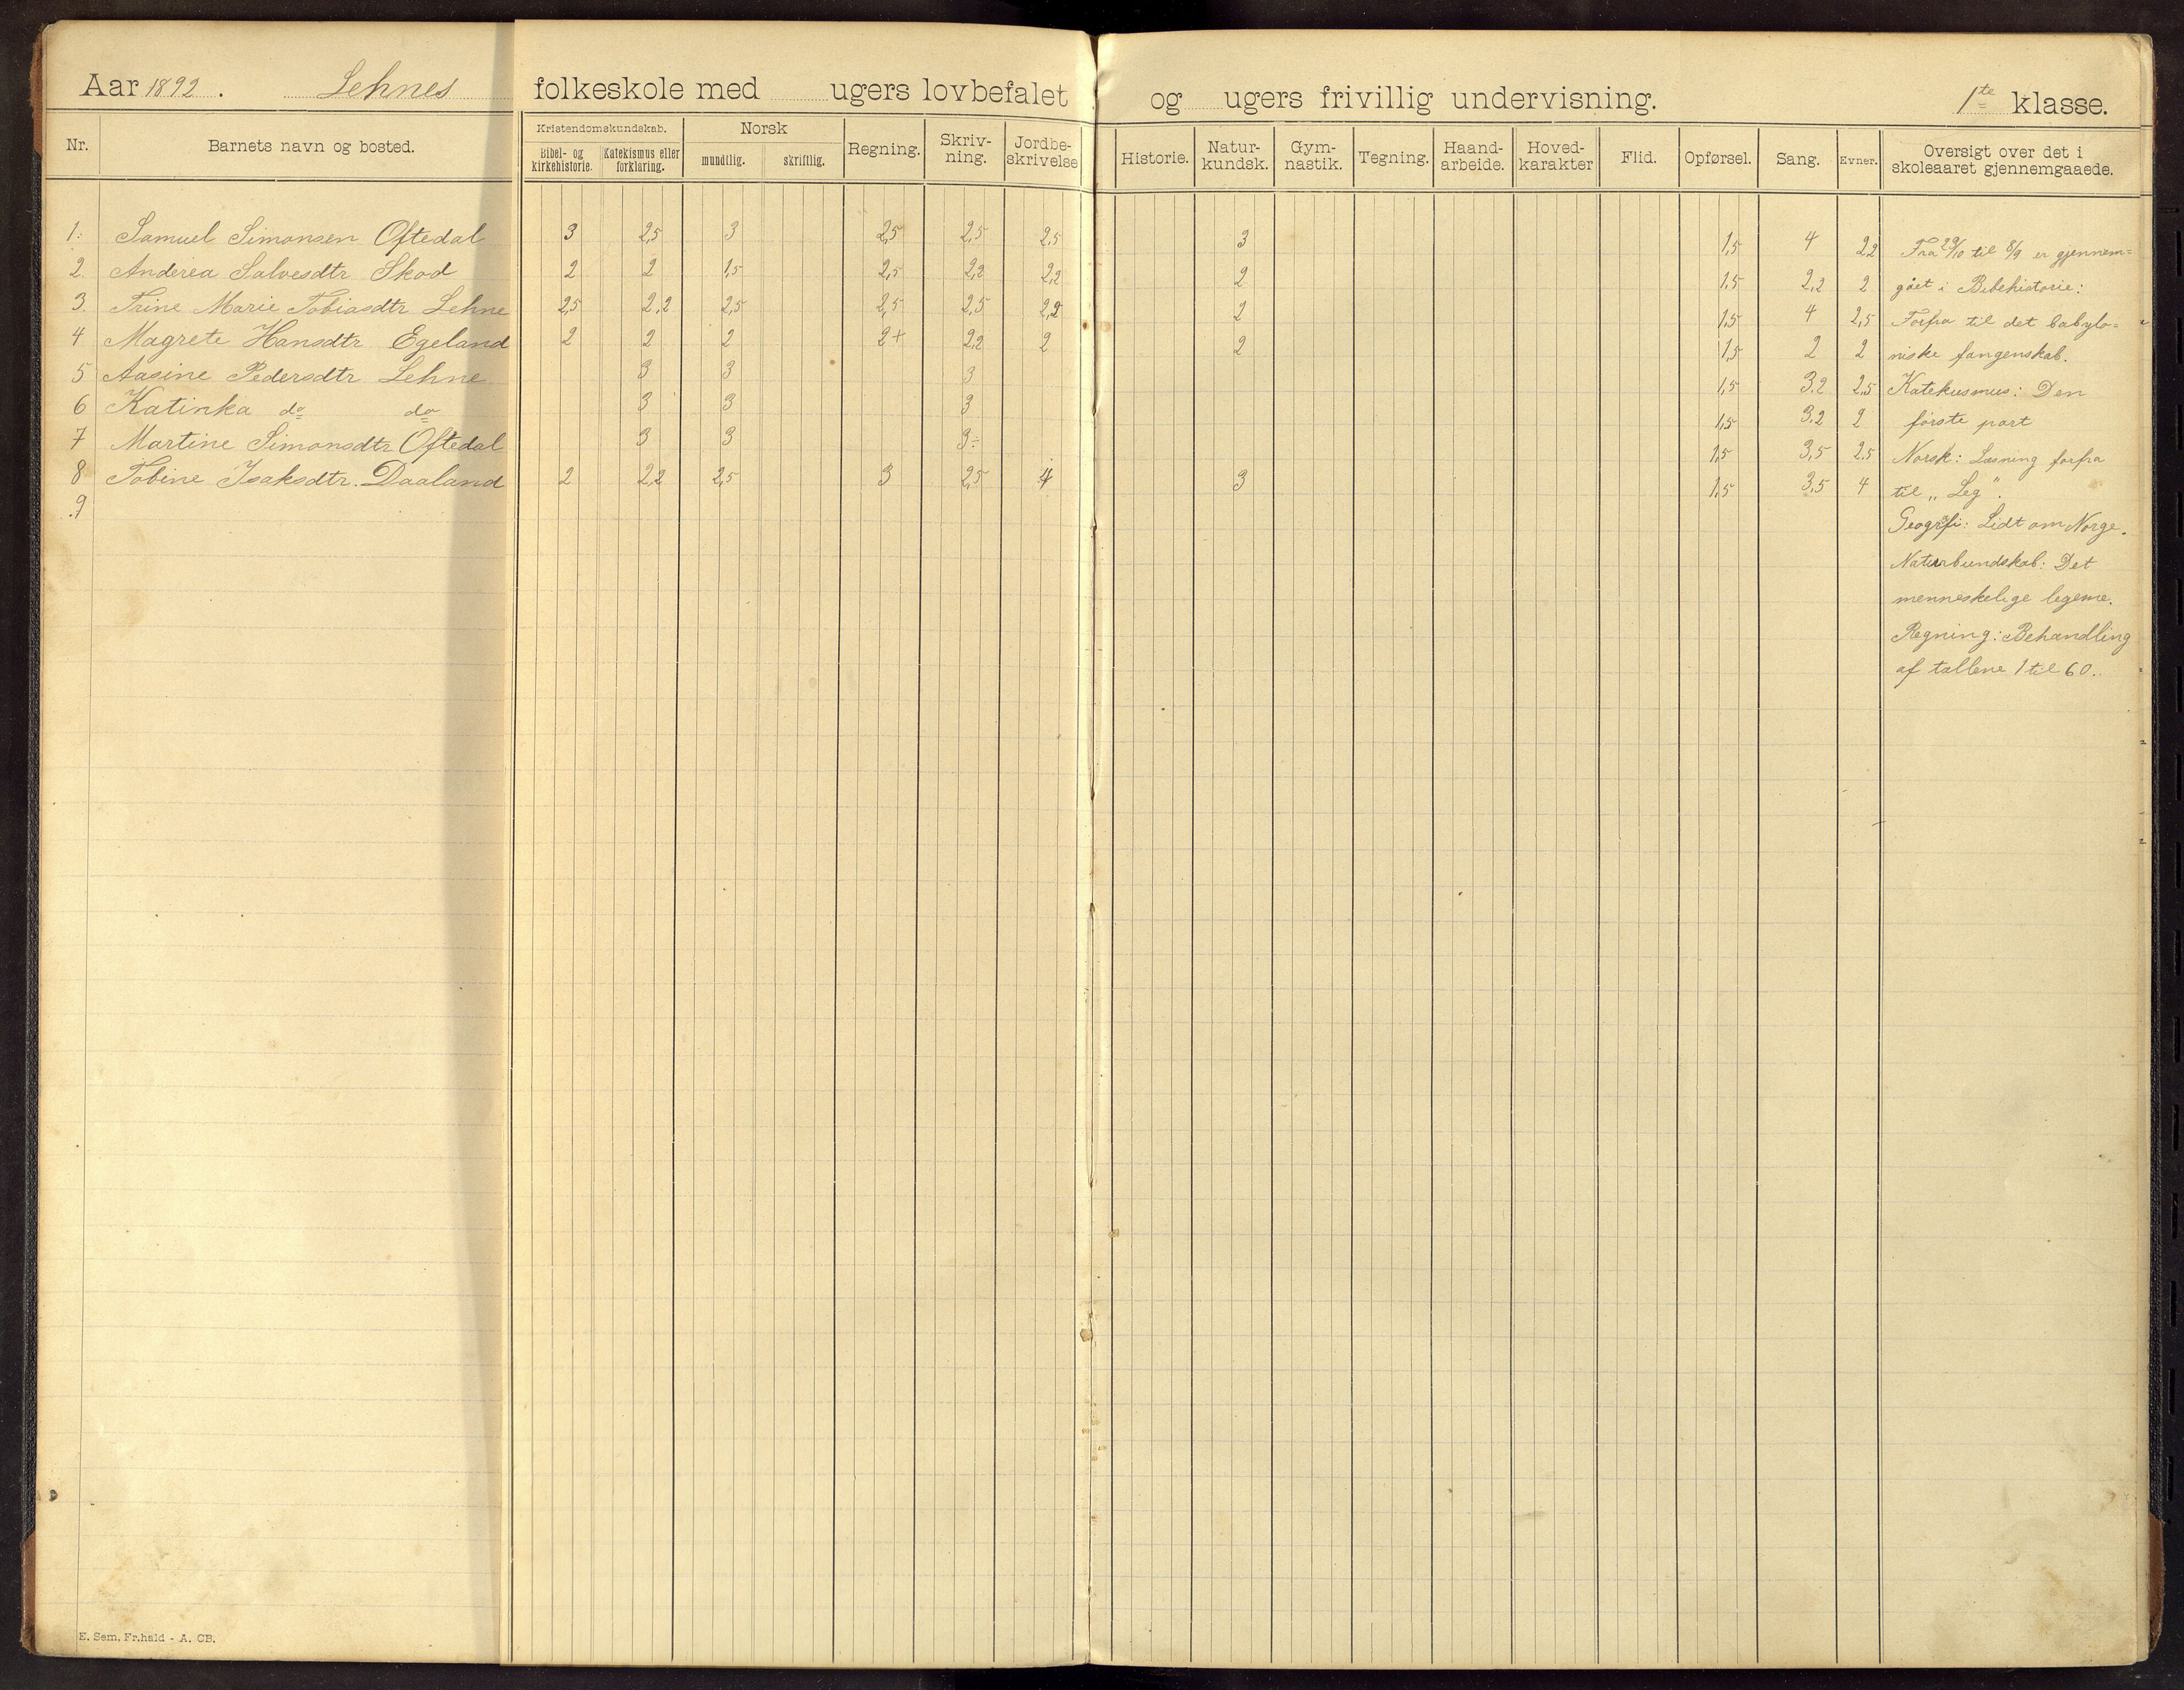 Aar 1892. Lehnes folkeskole med ugers lovbefalet og ugers frivillig undervisning. 1te klasse.
Nr. Barnets navn og bosted. Kristendomskundskab. Bibel- og kirkehistorie. Katekismus eller forklaring. Norsk mundtlig. skriftlig. Regning. Skriv-ning. Jordbe-skrivelse Historie. Natur-kundsk. Gym-nastik. Tegning. Haand-arbeide. Hoved-karakter Flid. Opførsel. Sang. Evner. Oversigt over det i skoleaaret gjennemgaaede.
1. Samuel Simonsen Oftedal 3 2,5 3 2,5 2,5 2,5 3 1,5 4 2,2
2. Anderea Salvesdtr Skod 2 2 1,5 2,5 2,2 2,2 2 1,5 2,2 2
3. Trine Marie Tobiasdtr Lehne 2,5 2,2 2,5 2,5 2,5 2,2 2 1,5 4 2,5
4 Magrete Hansdtr Egeland 2 2 2 2+ 2,2 2 2 1,5 2 2
5 Aasine Pedersdtr Lehne 3 3 3 1,5 3,2 2,5
6 Katinka do do 3 3 3 1,5 3,2 2
7 Martine Simonsdtr Oftedal 3 3 3÷ 1,5 3,5 2,5
8 Tobine Isaksdtr. Daaland 2 2,2 2,5 3 2,5 4 3 1,5 3,5 4
9
Fra 29/10 til 8/9 er gjennem=
gået i Bibehistorie:
Forfra til det babylo=
niske fangenskab.
Katekusmus: Den
første part
Norsk: Læsning forfra
til „Leg".
Geografi: Lidt om Norge.
Naturbundskab: Det
menneskelige legeme.
Regning: Behandling
af tallene 1 til 60.
E. Sem, Fr.hald - A. CB.